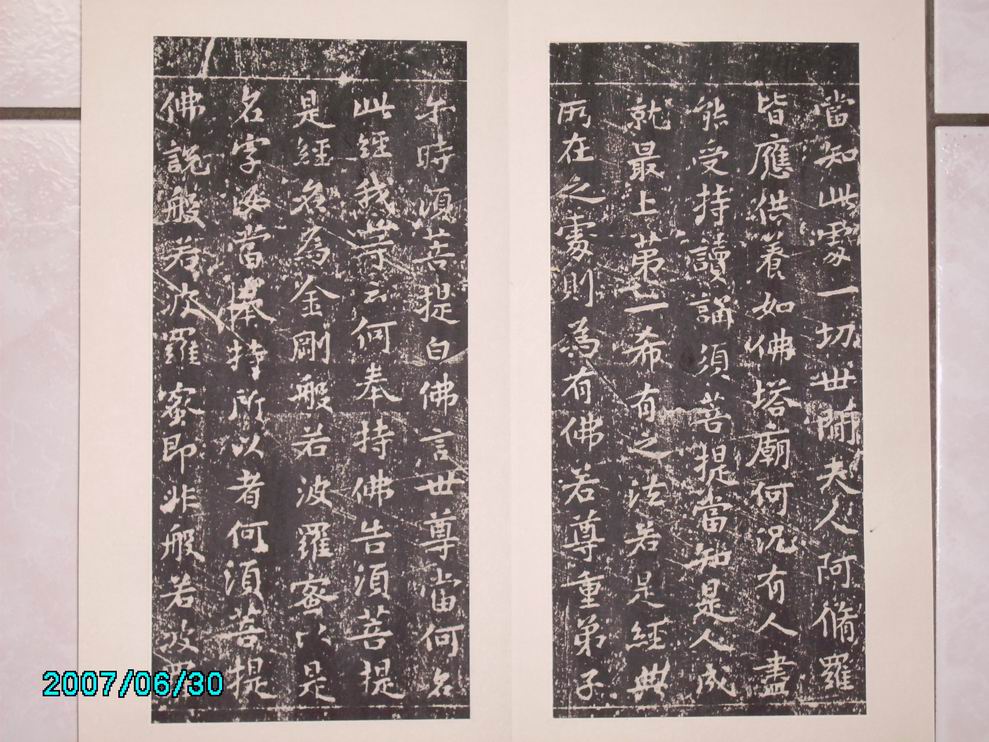 當知此處一切世間天人阿脩羅
皆應供養如佛塔廟何況有人盡
能受持讀誦須菩提當知是人成
就最上第一希有之法若是經典
所在之處則為有佛若尊重弟子
尒時須菩提白佛言世尊當何名
此經我等云何奉持佛告須菩提
是經名為金剛般若波羅蜜以是
名字汝當奉持所以者何須菩提
佛說般若波羅蜜即非般若波羅
2007/06/30